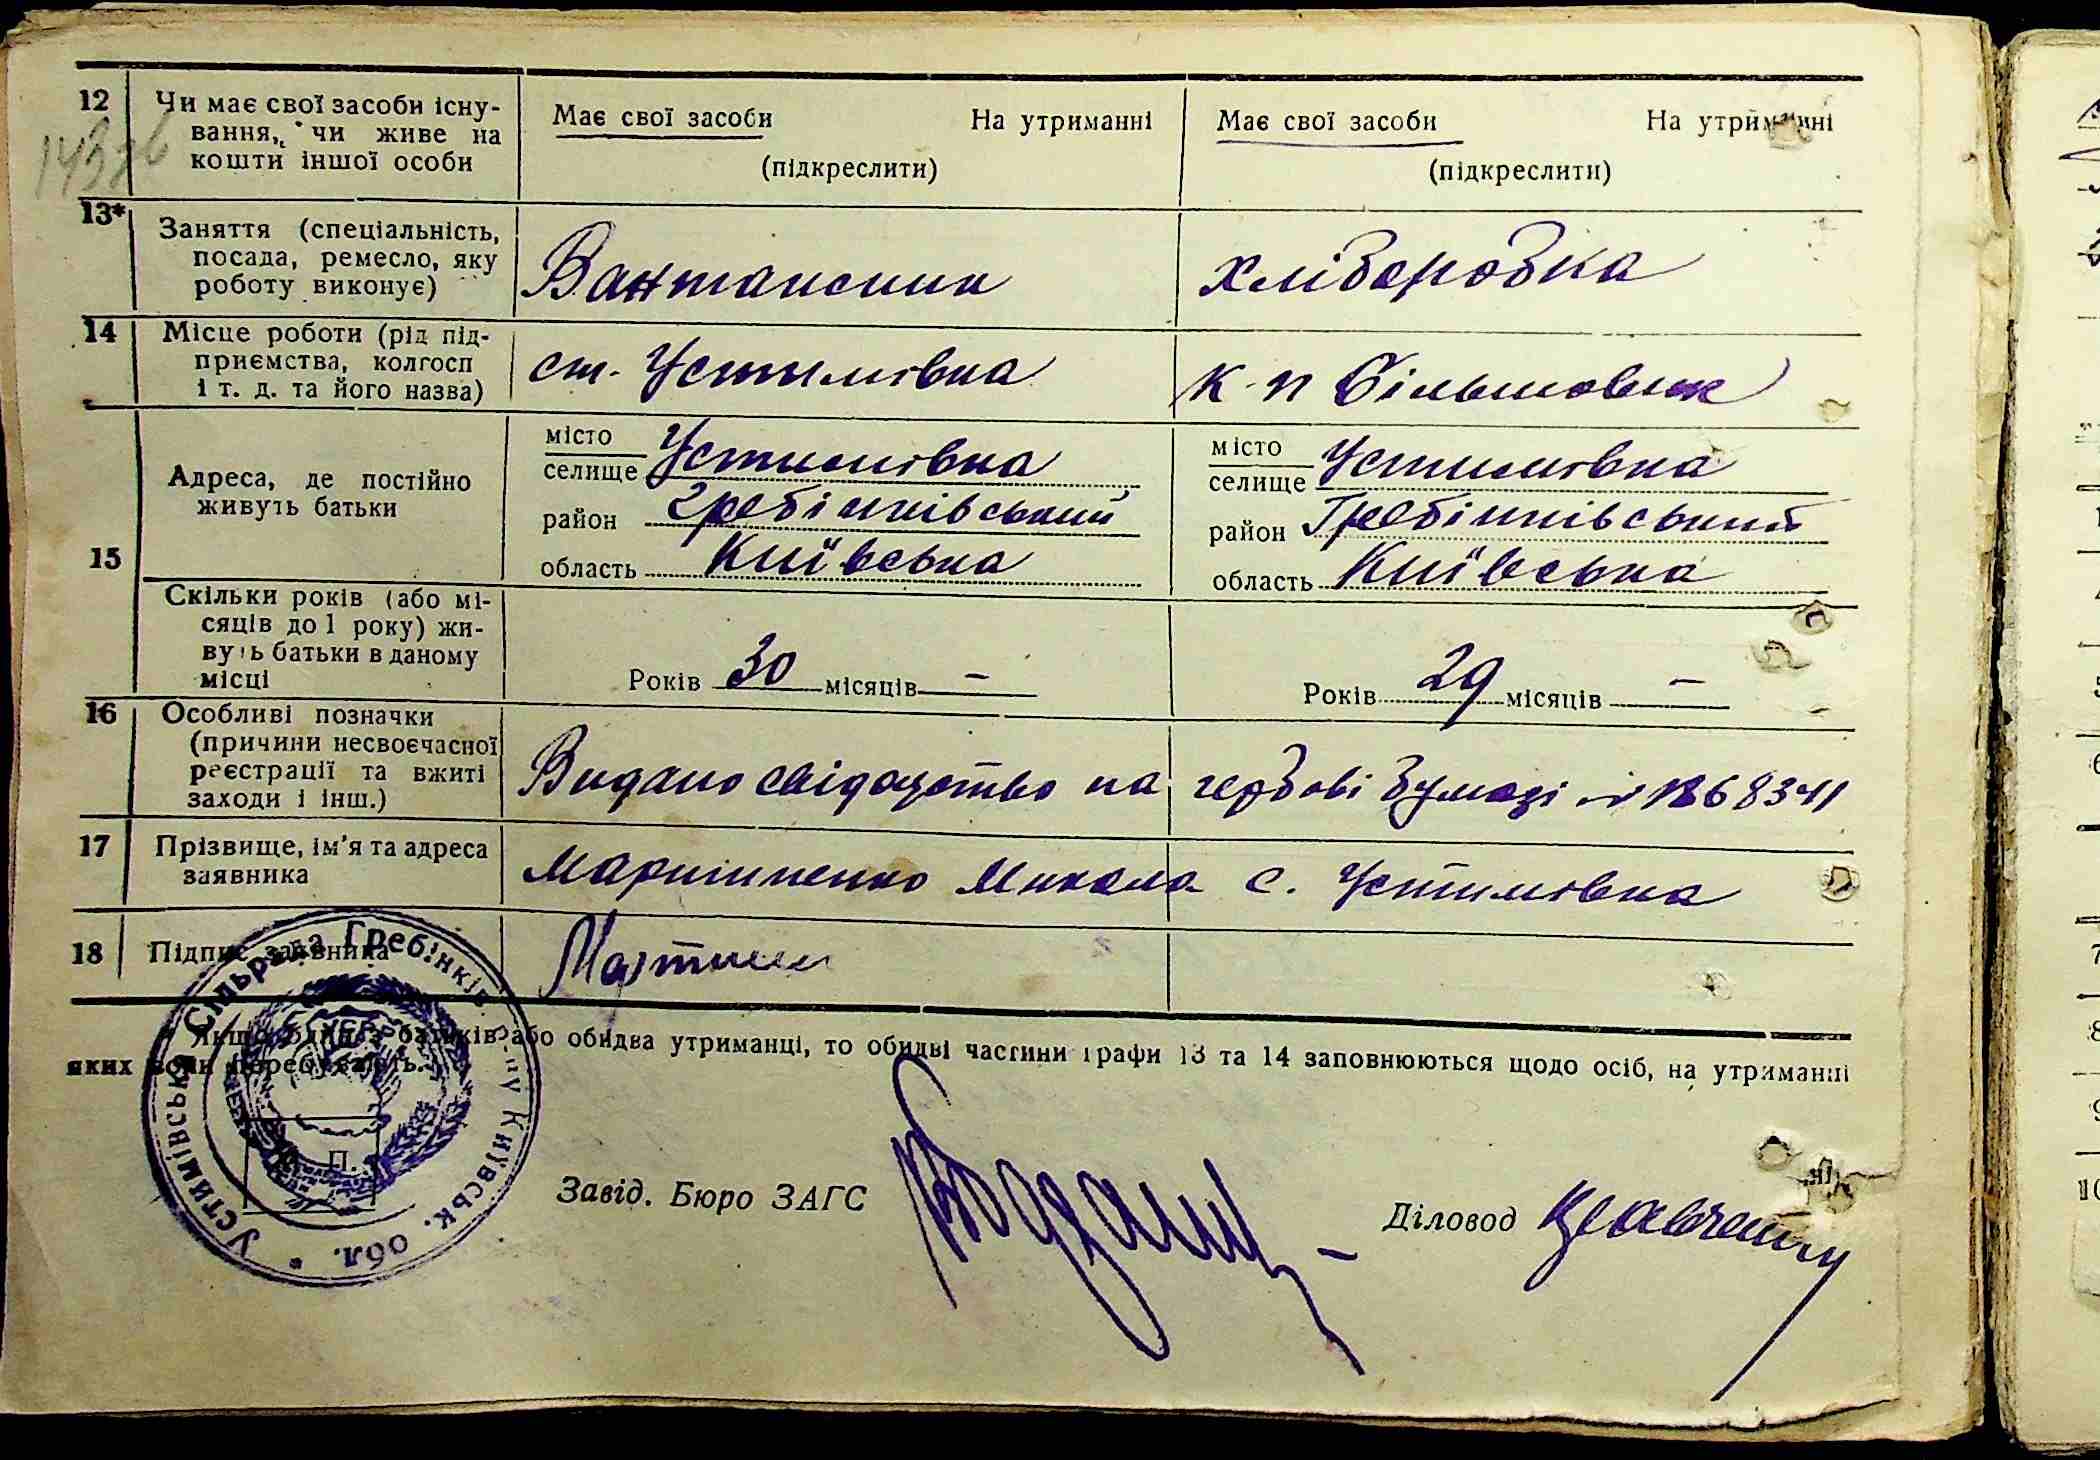 12
Чи має свої засоби існу-
вання, чи живе на
кошти іншої особи
Має свої засоби На утриманні
(підкреслити)
Має свої засоби На утриманні
(підкреслити)
13*
Заняття (спеціальність,
посада, ремесло, яку
роботу виконує)
Хліборобка
14
Місце роботи (рід під-
приємства, колгосп
і т. д. та його назва)
ст. Устимівка
к-п Більшовик
15
Адреса, де постійно
живуть батьки
місто
селище Устимівка
район Гребінківський
область Київська
місто
селище Устимівка
район Гребінківський
область Київська
Скільки років (або мі-
сяців до 1 року) жи-
вуть батьки в даному
місці
Років 30 місяців –
Років 29 місяців –
16
Особливі позначки
(причини несвоєчасної
реєстрації та вжиті
заходи і інш.)
Видано свідоцтво на гербові бумазі № 1868341
17
Прізвище, ім'я та адреса
заявника
Микола с. Устимівка
18
Підпис заявника
Якщо один з батьків або обидва утриманці, то обидві частини графи 13 та 14 заповнюються щодо осіб, на утриманні
яких вони перебувають.
Устимівська Сільрада Гребінків р-ну Київськ. обл.
П.
Завід. Бюро ЗАГС
Діловод